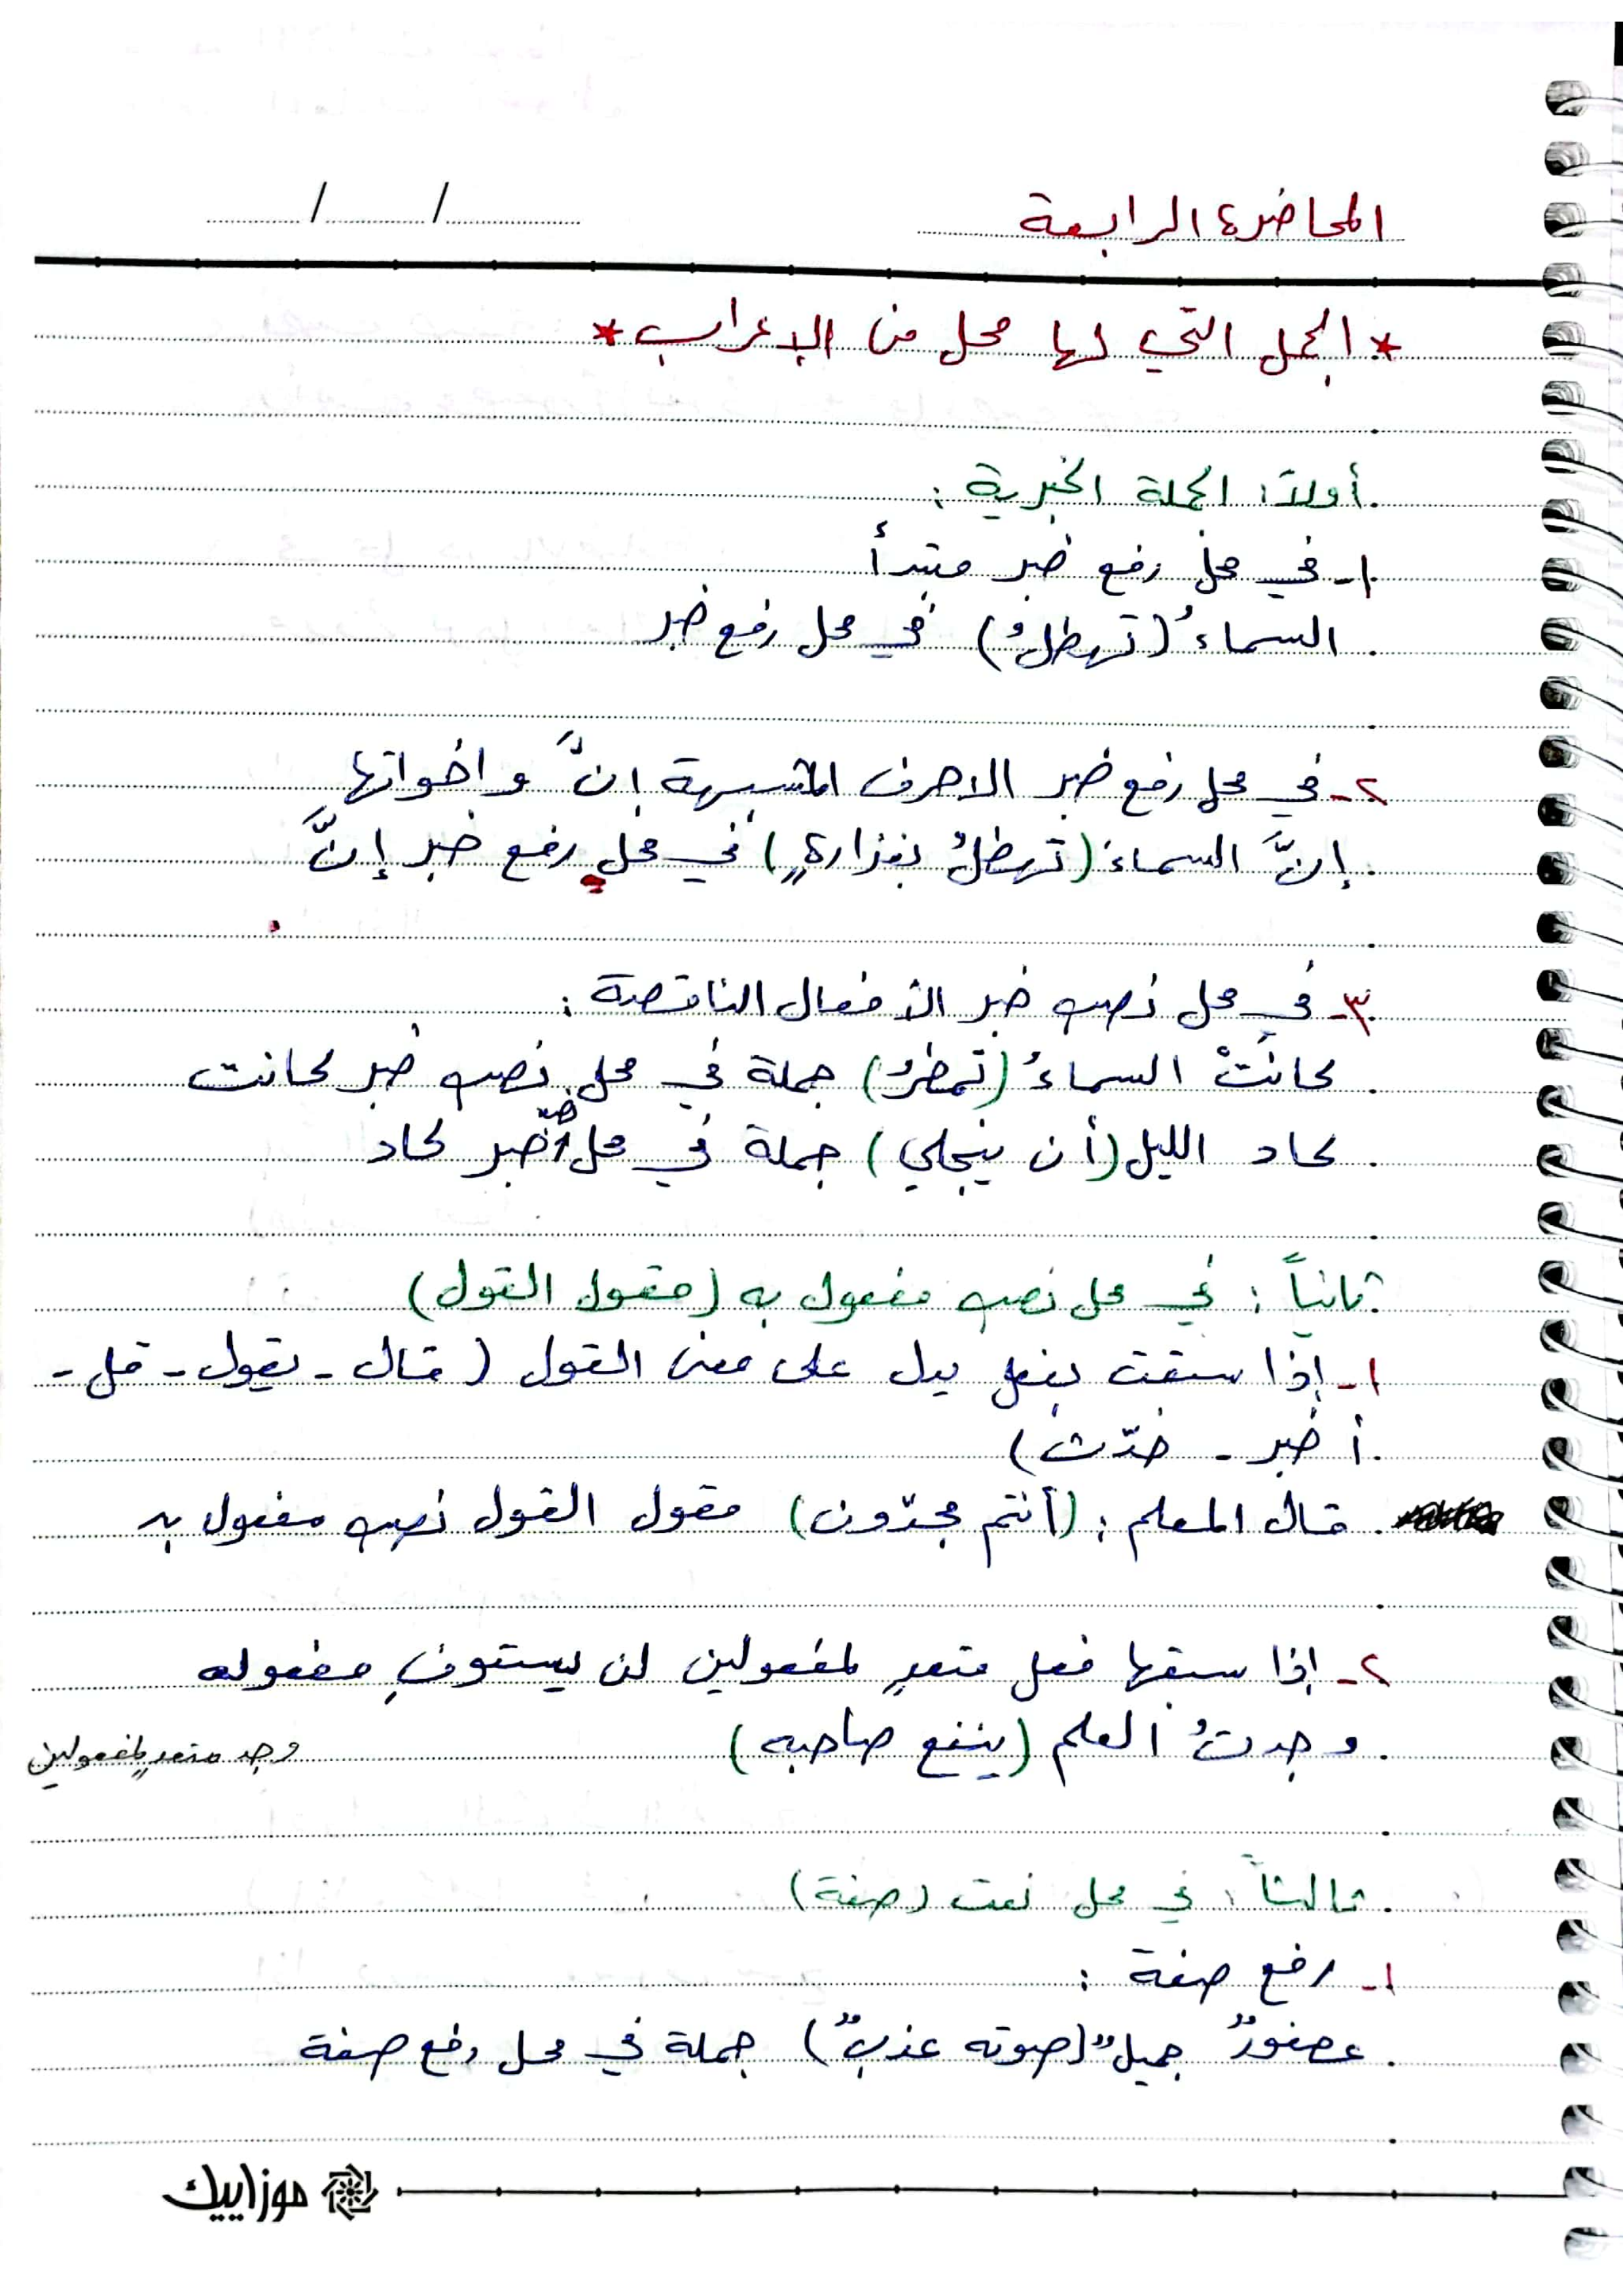 المحاضرة الرابعة
/ /
* الجمل التي لها محل من الإعراب *
أولاً: الجملة الخبرية :
١- في محل رفع خبر مبتدأ
السماءُ (تهطلُ) في محل رفع خبر
٢- في محل رفع خبر الاحرف المشبهة إنَّ واخواتها
إنَّ السماءَ (تهطلُ بغزارةٍ) في محل رفع خبر إنَّ
٣- في محل نصب خبر الأفعال الناقصة :
كانَتْ السماءُ (تمطرُ) جملة في محل نصب خبر كانت
كاد الليل (أن ينجلي) جملة في محل نصب خبر كاد
ثانياً : في محل نصب مفعول به (مقول القول)
١- إذا سبقت بفعل يدل على معنى القول (قال - يقول - قل -
أخبر - حدّث)
قال المعلم : (أنتم مجدّون) مقول القول نصب مفعول به
٢- إذا سبقها فعل متعدٍ لمفعولين لن يستوفِ مفعوله
وجدتُ العلم (ينفع صاحبه)
وجد متعدٍ لمفعولين
ثالثاً : في محل نعت (صفة)
١- رفع صفة :
عصفورٌ جميلٌ (صوته عذبٌ) جملة في محل رفع صفة
موزاييك